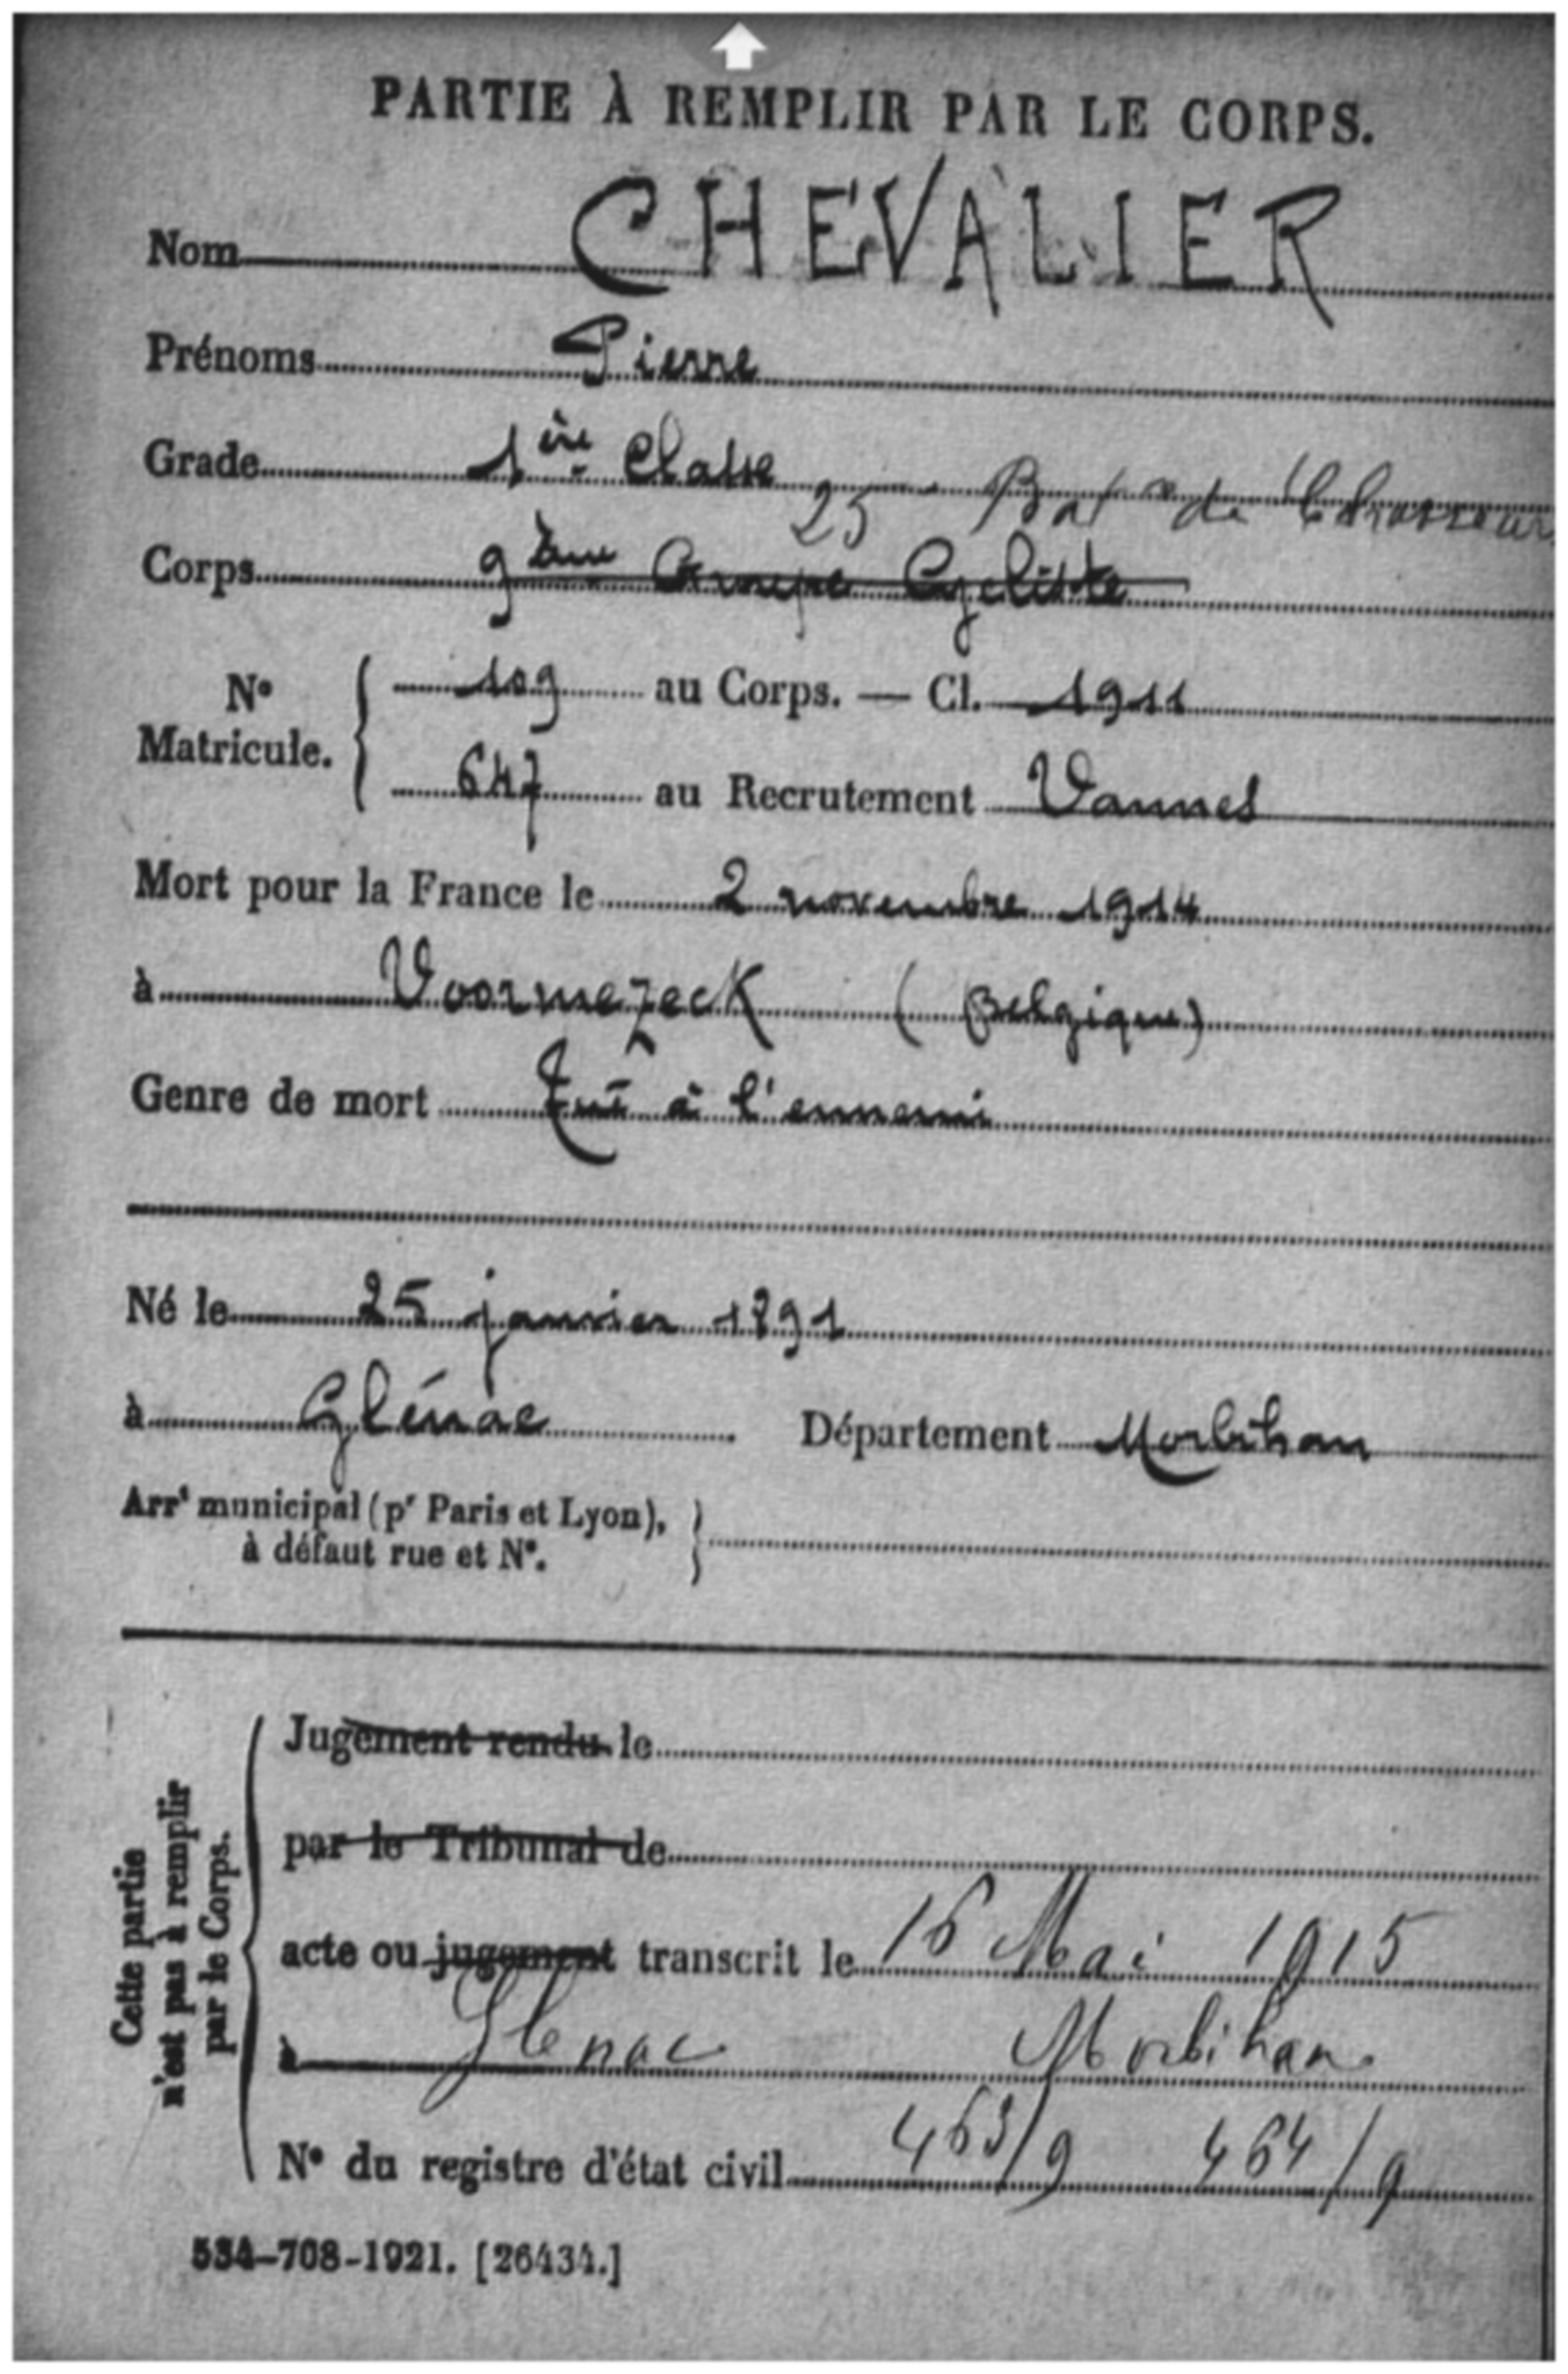 PARTIE À REMPLIR PAR LE CORPS.
Nom CHEVALIER
Prénoms Pierre
Grade 1ère Classe
25 Bat de Chasseurs
Corps 9ème Groupe Cycliste
N° Matricule. 109 au Corps. — Cl. 1911
647 au Recrutement Vannes
Mort pour la France le 2 novembre 1914
à Voormezeck (Belgique)
Genre de mort Tué à l'ennemi
Né le 25 janvier 1891
à Glénac Département Morbihan
Arrt municipal (pr Paris et Lyon),
à défaut rue et N°.
Cette partie
n'est pas à remplir
par le Corps.
Jugement rendu le
par le Tribunal de
acte ou jugement transcrit le 16 Mai 1915
à Glenac Morbihan
N° du registre d'état civil 463/9 464/9
534-708-1921. [26434.]